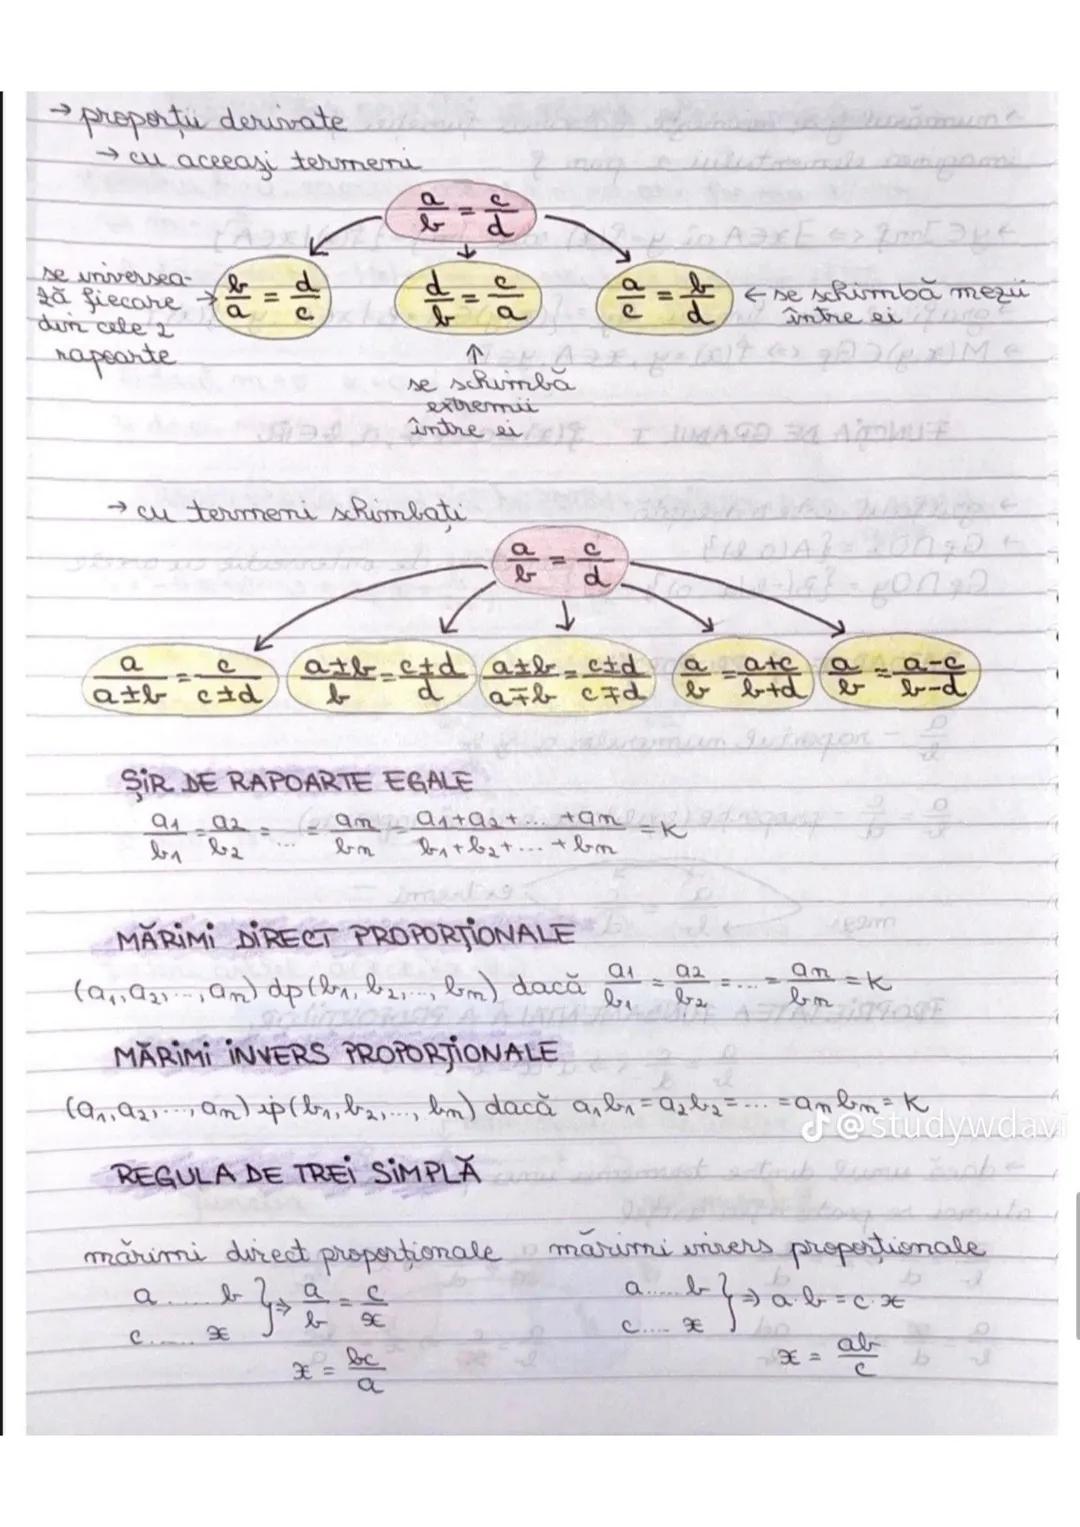 → proporții derivate
→ cu aceeași termeni
a/b = c/d
se inversea-
ză fiecare →
din cele 2
rapoarte
b/a = d/c
d/b = c/a
a/c = b/d
← se schimbă mezii
între ei
↑
se schimbă
extremii
între ei
→ cu termeni schimbați
a/b = c/d
a/(a±b) = c/(c±d)
(a±b)/b = (c±d)/d
(a±b)/(a∓b) = (c±d)/(c∓d)
a/b = (a+c)/(b+d)
a/b = (a-c)/(b-d)
ȘIR DE RAPOARTE EGALE
a₁/b₁ = a₂/b₂ = ... = aₙ/bₙ = (a₁+a₂+...+aₙ)/(b₁+b₂+...+bₙ) = K
MĂRIMI DIRECT PROPORȚIONALE
(a₁, a₂, ..., aₙ) dp (b₁, b₂, ..., bₙ) dacă a₁/b₁ = a₂/b₂ = ... = aₙ/bₙ = K
MĂRIMI INVERS PROPORȚIONALE
(a₁, a₂, ..., aₙ) ip (b₁, b₂, ..., bₙ) dacă a₁b₁ = a₂b₂ = ... = aₙbₙ = K
@studywdavi
REGULA DE TREI SIMPLĂ
mărimi direct proporționale
a ...... b } ⇒ a/b = c/x
c ...... x
x = bc/a
mărimi invers proporționale
a ...... b } ⇒ a·b = c·x
c .... x
x = ab/c